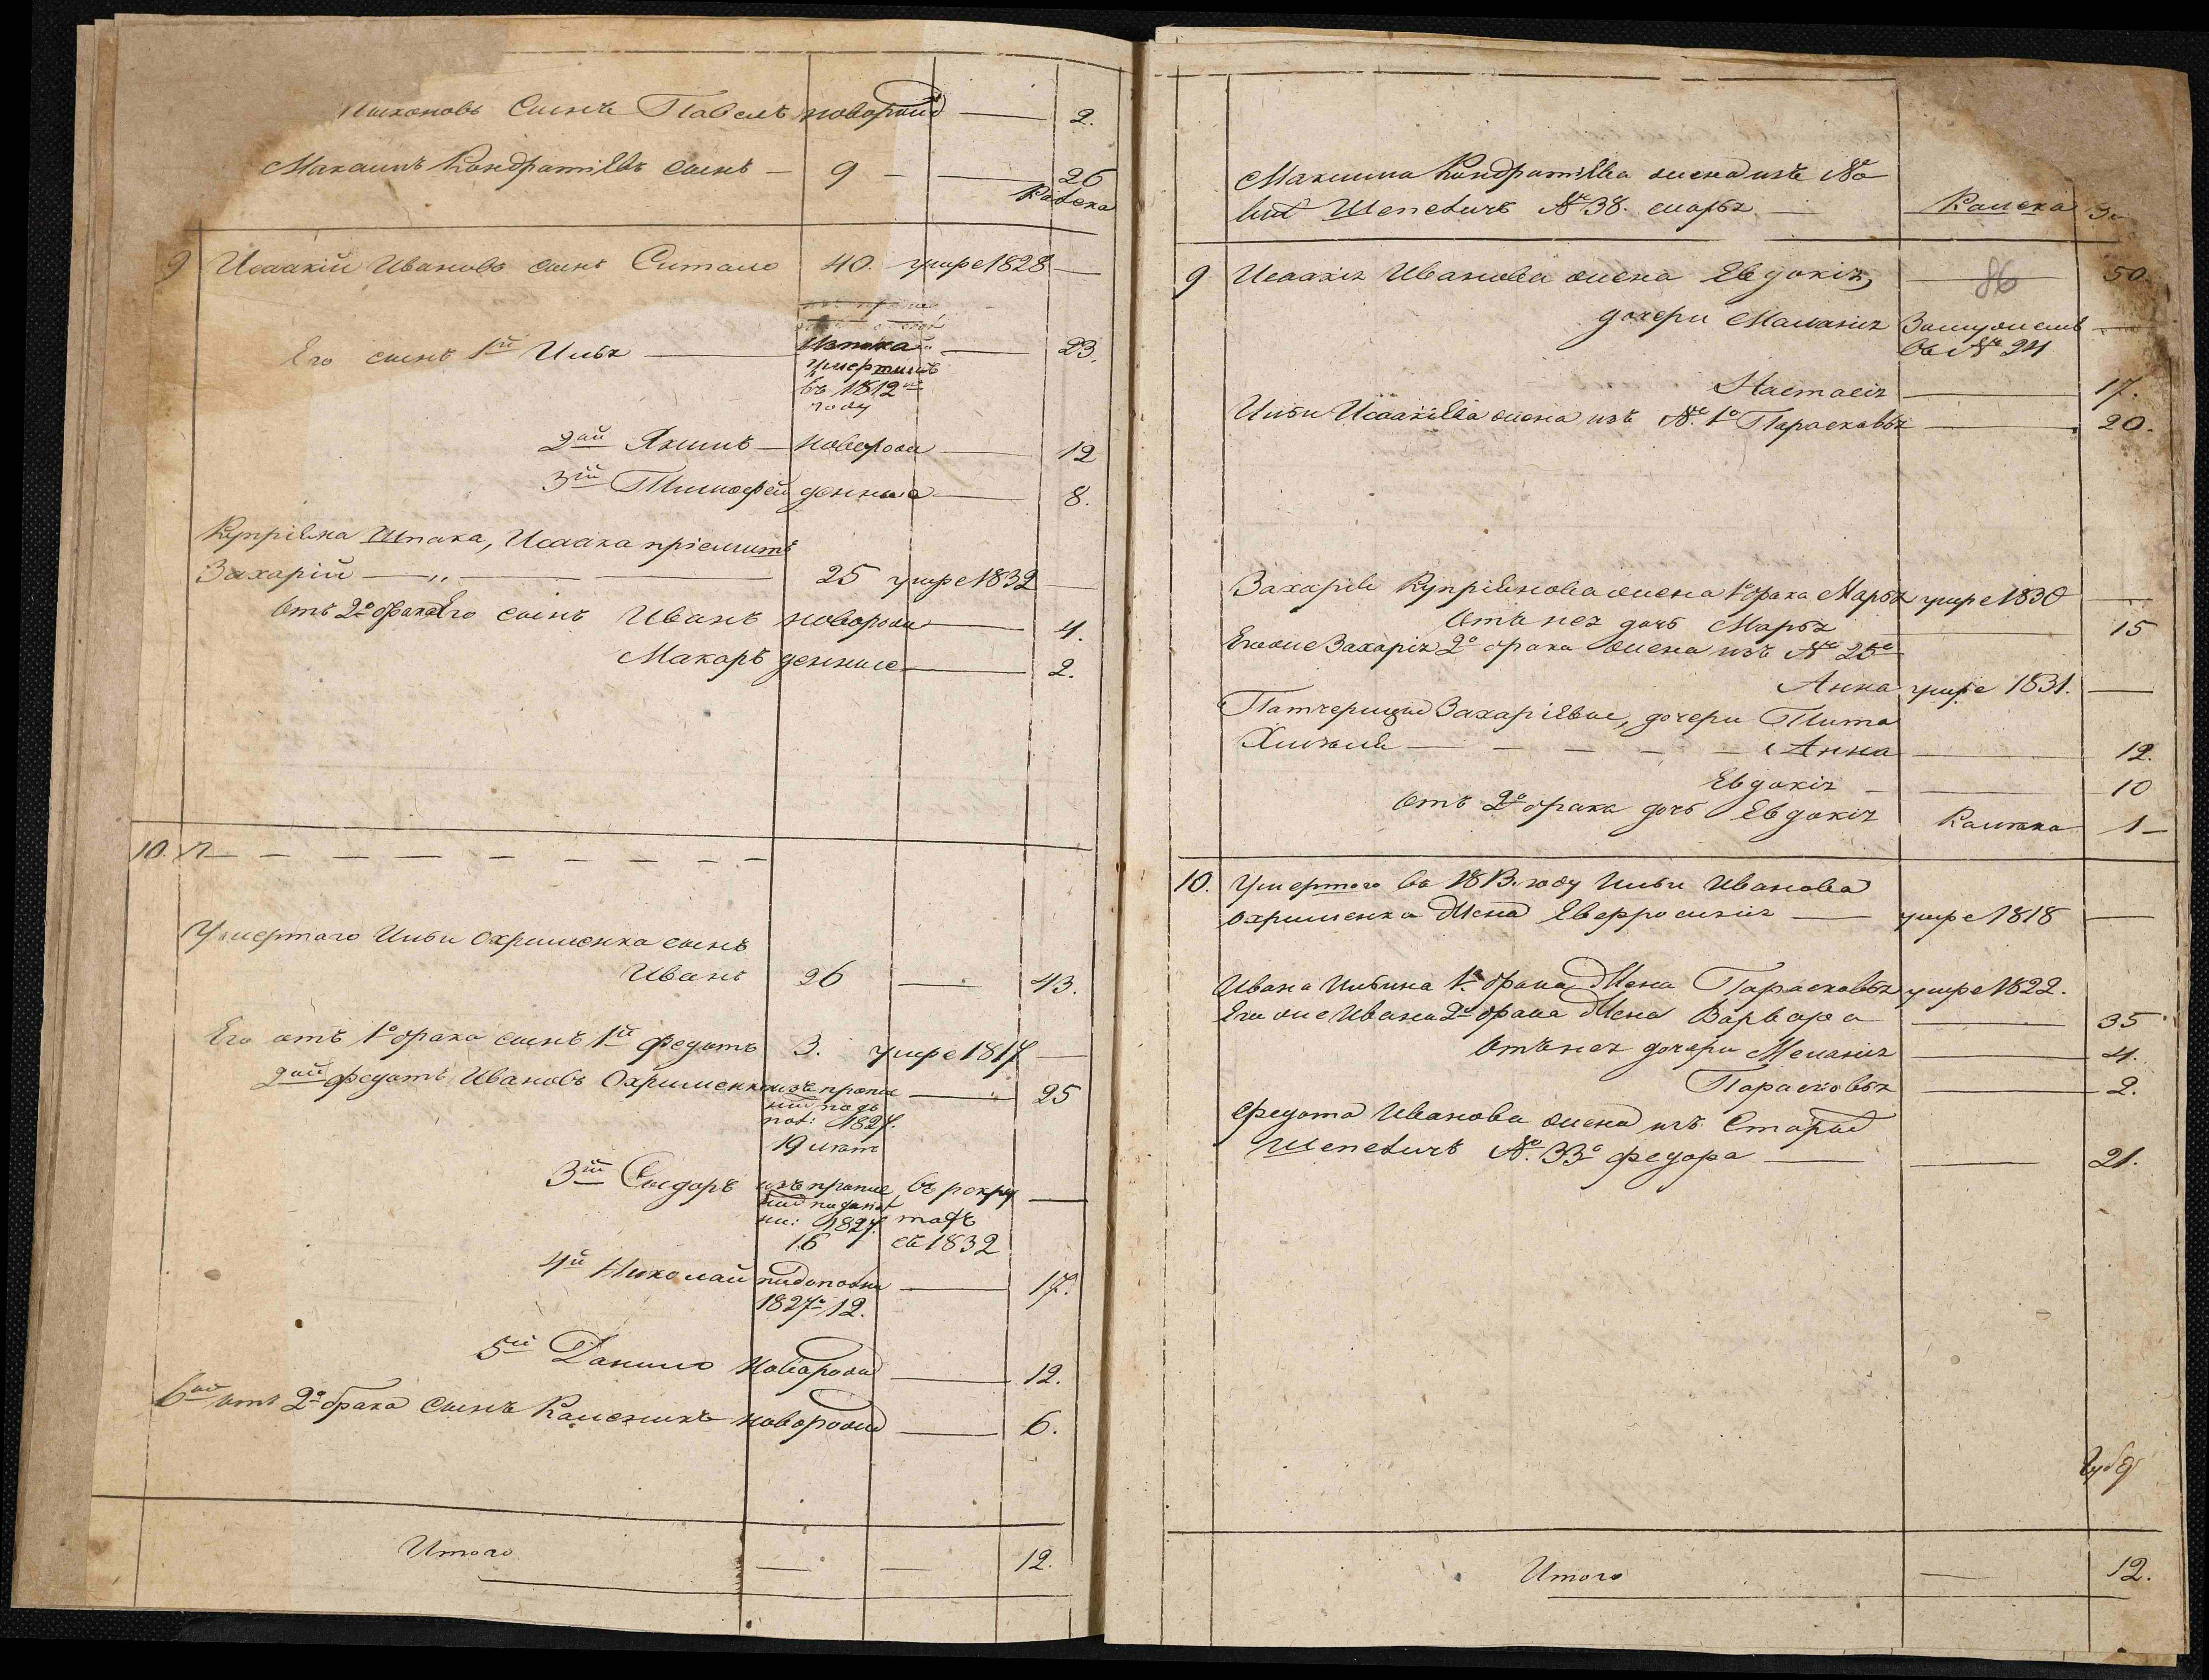 сынъ Павелъ новорожд — 2.
Максимъ Кондратіевъ сынъ — 9 — — 26
9 Исаакій Ивановъ сынъ Ситало 40. умре 1828 —
Его сынъ 1й Илья — 23.
въ 1812м
году
2ой Якимъ — новорож — 12
3ій Тимофей денные — 8.
Купріяна Шпака, Исаака пріемышъ
Захарій — „ — — 25 умре 1832 —
отъ 2о брака Его сынъ Иванъ новорож — 4.
Макаръ денные — 2.
10. — — — — — — — —
Умертаго Ильи Охрименка сынъ
Иванъ 26 — 43.
Его отъ 1о брака сынъ 1й Федотъ 3. умре 1817 —
2ой Федотъ Ивановъ Охрименко изъ пропи — 25
1827.
19 лѣтъ
3ій Сидоръ изъ пропис въ рекру —
1827. тахъ
16 съ 1832
4й Николай — 17.
1827о 12.
5й Данило новорожд — 12.
6ой отъ 2о брака сынъ новорожд — 6.
Итого — — 12.
Максима Кондратіева жена изъ Но
вой Шепетичъ № 38. Марья —
9 Исаакія Иванова жена Евдокія — 86 50.
дочери Маланія Замужемъ —
въ № 24
Настасія — 17.
Ильи Исаакіева жена изъ №. 1о Парасковья — 20.
Захарія Купріянова жена 1о брака Марья умре 1830 —
Отъ нея дочь Марья — 15
Его же Захарія 2о брака жена изъ № 25о
Анна умре 1831. —
Патчерицы Захаріевые, дочери Тита
— — — — — Анна — 12.
Евдокія — — 10
Отъ 2о брака дочь Евдокія 1 —
10. Умертого въ 1813. году Ильи Иванова
Охрименка жена Евфросинія — умре 1818 —
Ивана Ильина 1о брака жена Парасковья умре 1822.
Его же Ивана 2о брака жена Варвара — 35
Отъ нея дочери Меланія — 4.
Парасковья — 2.
Федота Иванова жена изъ Старой
Шепетичъ №. 33о Федора — — 21.
Итого — 12.